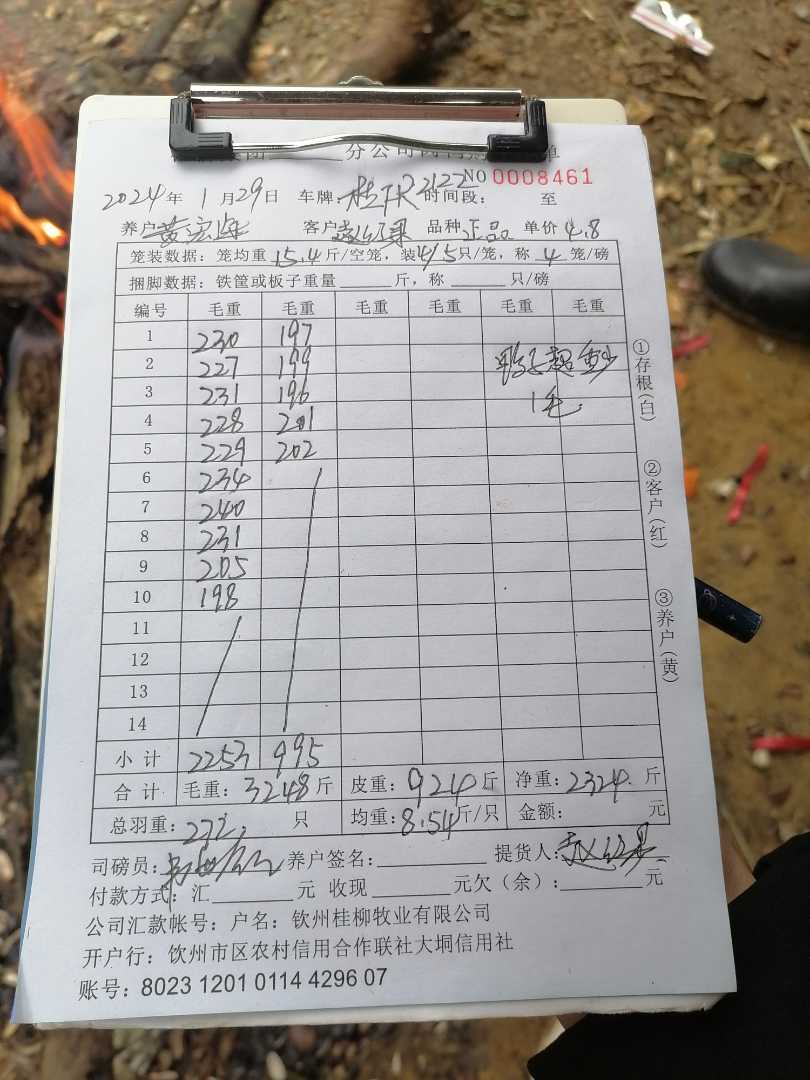 分公司 单
NO 0008461
2024年 1月29日 车牌: 2122 时间段: 至
养户 黄宏 客户 赵红 品种 正品 单价 4.8
笼装数据: 笼均重 15.4 斤/空笼, 装 4/5 只/笼, 称 4 笼/磅
捆脚数据: 铁筐或板子重量 斤, 称 只/磅
编号 毛重 毛重 毛重 毛重 毛重 毛重
1 230 197
2 227 199 鸭子超重
3 231 196 1毛
4 228 201
5 229 202
6 234
7 240
8 231
9 205
10 198
11
12
13
14
小计 2253 995
合计 毛重: 3248 斤 皮重: 924 斤 净重: 2324 斤
总羽重: 272 只 均重: 8.54 斤/只 金额: 元
司磅员: 养户签名: 提货人: 赵红
付款方式: 汇 元 收现 元欠(余): 元
公司汇款帐号: 户名: 钦州桂柳牧业有限公司
开户行: 饮州市区农村信用合作联社大垌信用社
账号: 8023 1201 0114 4296 07
①存根(白)
②客户(红)
③养户(黄)